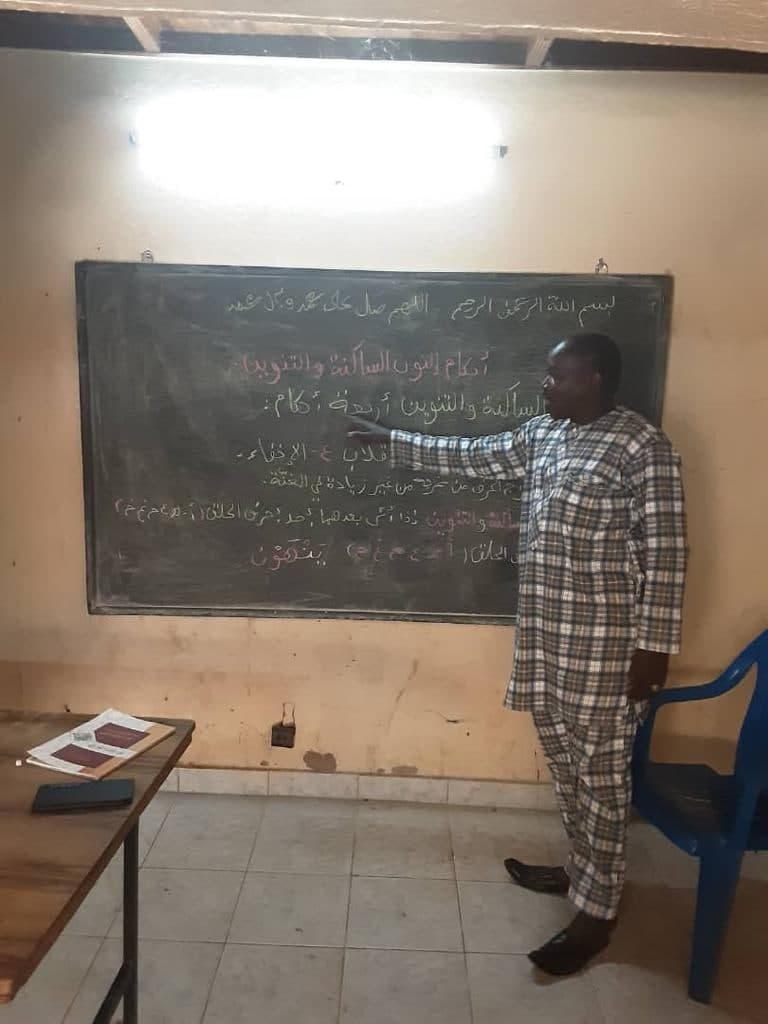 بسم الله الرحمن الرحيم اللهم صل على محمد وآل محمد
أحكام النون الساكنة والتنوين.
الساكنة والتنوين أربعة أحكام:
قلاب ٤- الإخفاء.
من غير زيادة في الغنّة.
والتنوين إذا أتى بعدهما أحد أحرف الحلق (أ - ه ع ح غ خ)
الحلق (أ ه ع ح غ خ) يَنْهَوْن